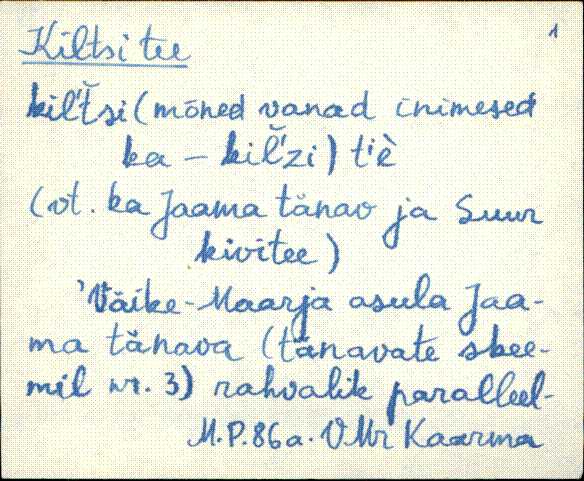 1
Kiltsi tee
kil't̆si (mõned vanad inimesed
ka – kil̆'zi) tiè
(vt. ka Jaama tänav ja Suur
kivitee)
'Väike-Maarja asula Jaa-
ma tänava (tänavate skee-
mil nr. 3) rahvalik paralleel-
M.P. 86 a. VMr Kaarma